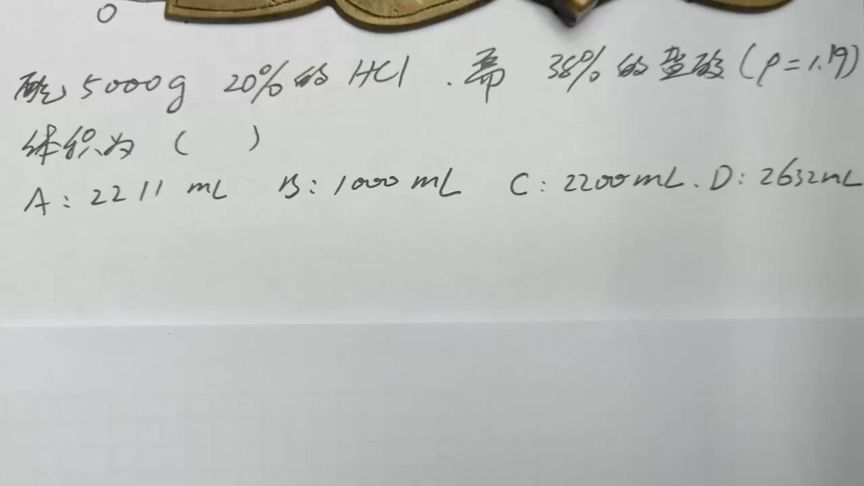 0
配 5000g 20%的 HCl . 需 38%的盐酸(ρ=1.19)
体积为 ( )
A: 2211 mL B: 1000 mL C: 2200mL. D: 2632mL